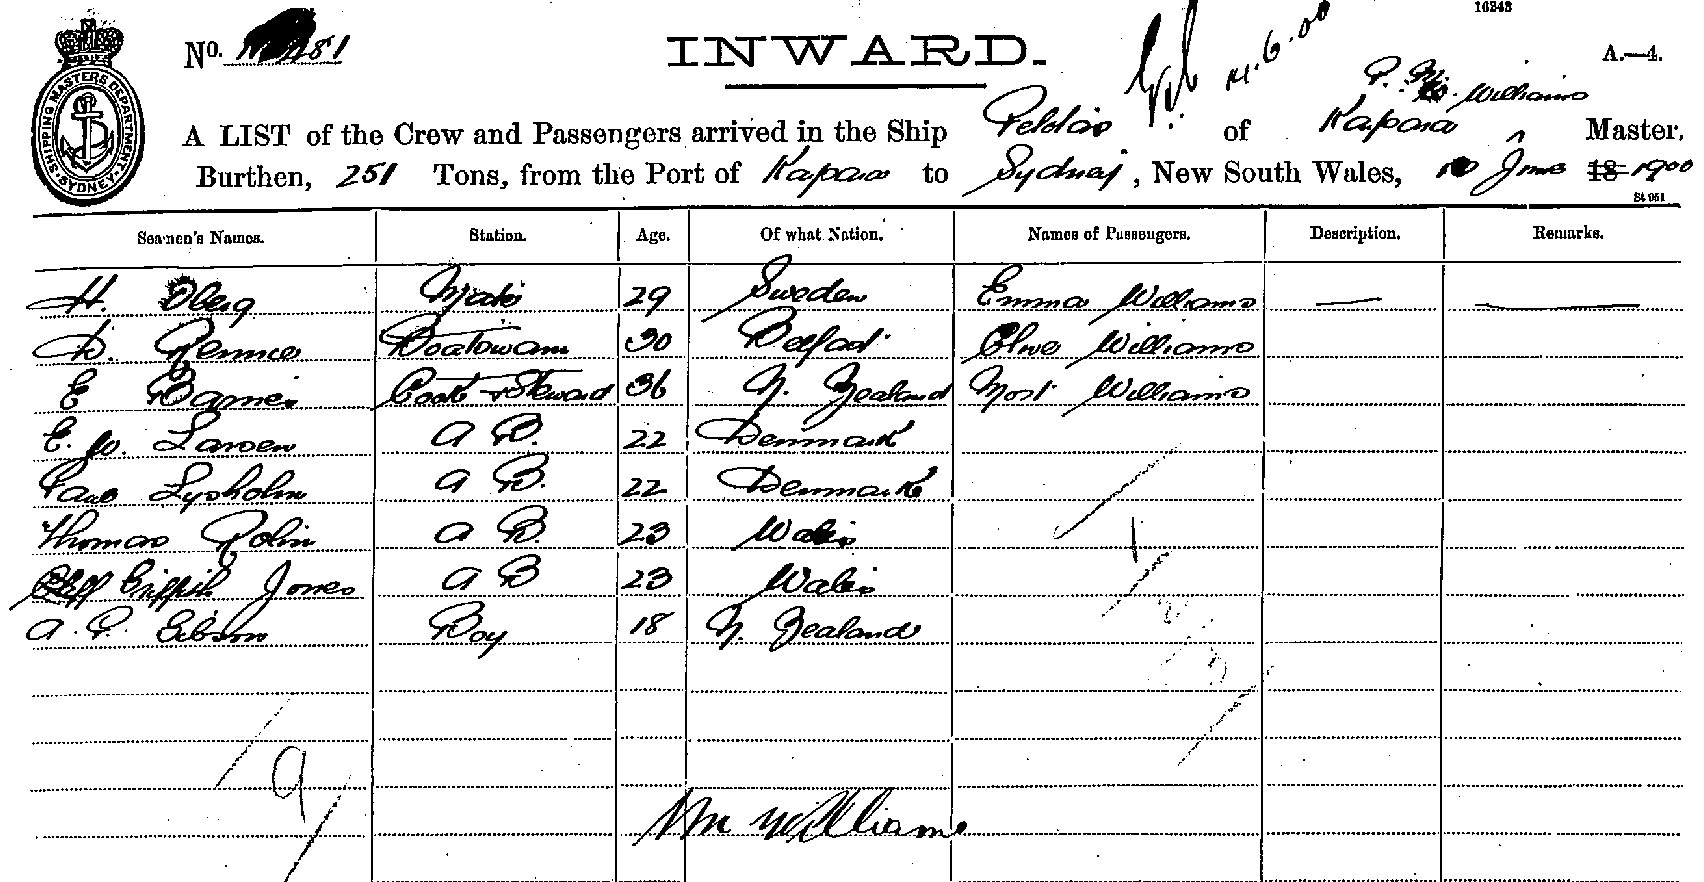 16343
No. 481
INWARD.
11.6.00
A.—4.
Williams
A LIST of the Crew and Passengers arrived in the Ship Peldao of Kapara Master,
Burthen, 251 Tons, from the Port of Kapara to Sydney, New South Wales, 10 June 18 1900
St 951
SHIPPING MASTERS DEPARTMENT. SYDNEY.
Seamen's Names. Station. Age. Of what Nation. Names of Passengers. Description. Remarks.
H. Oberg Mate 29 Sweden Emma Williams
D. Rennie Boatswain 30 Belfast Olive Williams
E Barnes Cook & Steward 36 N. Zealand Williams
E. W. Larsen A B. 22 Denmark
Lysholm A B. 22 Denmark
Thomas Rolin A B. 23 Wales
Griffith Jones A B 23 Wales
A. P. Gibson Boy 18 N. Zealand
9
3
Wm Williams